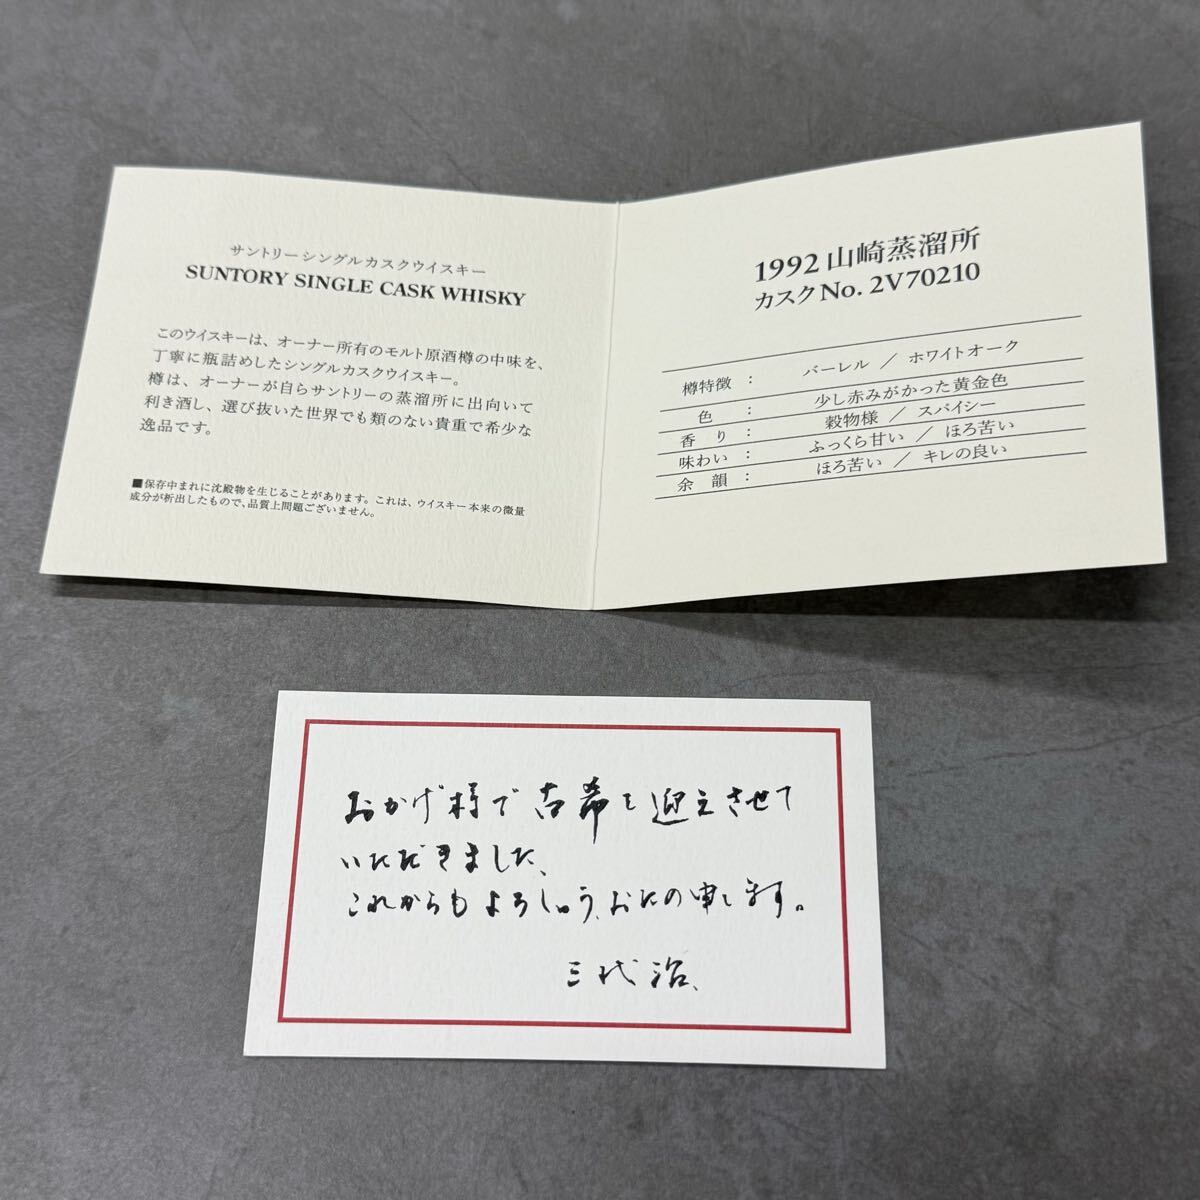 サントリーシングルカスクウイスキー
SUNTORY SINGLE CASK WHISKY
このウイスキーは、オーナー所有のモルト原酒樽の中味を、
丁寧に瓶詰めしたシングルカスクウイスキー。
樽は、オーナーが自らサントリーの蒸溜所に出向いて
利き酒し、選び抜いた世界でも類のない貴重で希少な
逸品です。
■保存中まれに沈殿物を生じることがあります。これは、ウイスキー本来の微量
成分が析出したもので、品質上問題ございません。
1992 山崎蒸溜所
カスク No. 2V70210
樽特徴 : バーレル / ホワイトオーク
色 : 少し赤みがかった黄金色
香り : 穀物様 / スパイシー
味わい : ふっくら甘い / ほろ苦い
余韻 : ほろ苦い / キレの良い
おかげ様で古希を迎えさせて
いただきました、
これからもよろしゅう、おたの申します。
三代治、